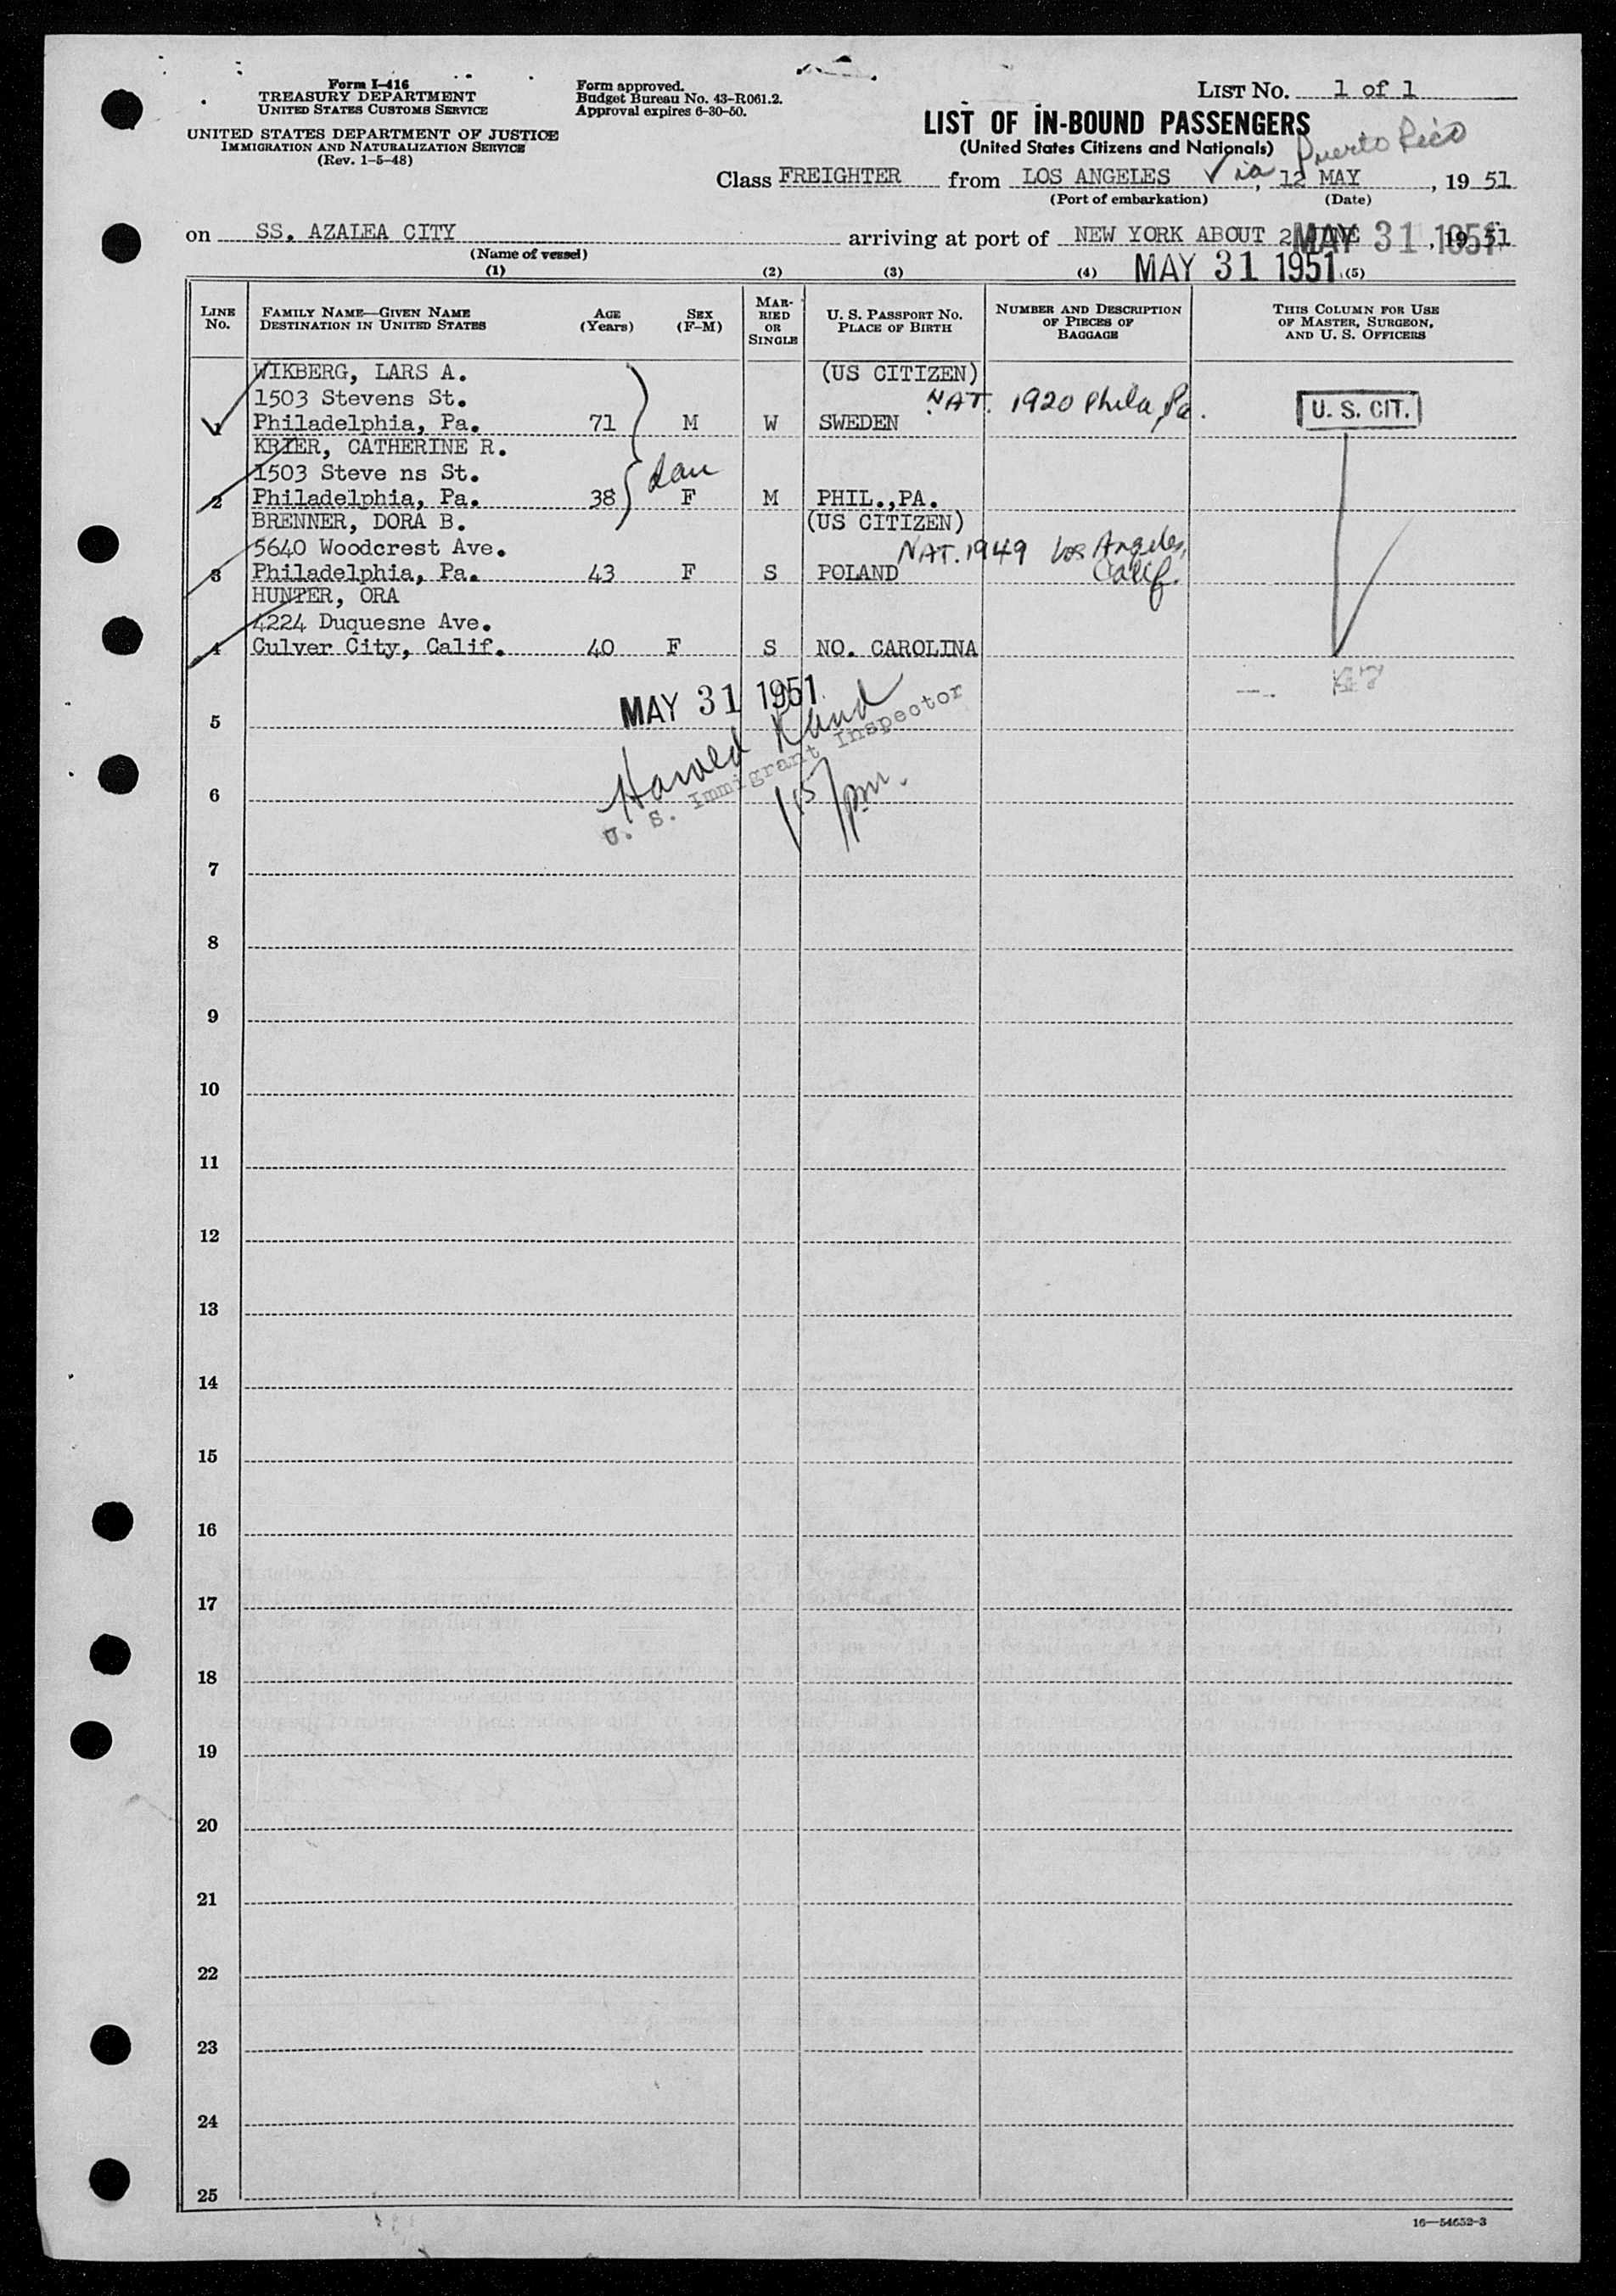 Form I-416
TREASURY DEPARTMENT
UNITED STATES CUSTOMS SERVICE
UNITED STATES DEPARTMENT OF JUSTICE
IMMIGRATION AND NATURALIZATION SERVICE
(Rev. 1-5-48)
Form approved.
Budget Bureau No. 43-R061.2.
Approval expires 6-30-50.
LIST No. 1 of 1
LIST OF IN-BOUND PASSENGERS
(United States Citizens and Nationals)
Via Puerto Rico
Class FREIGHTER from LOS ANGELES, 12 MAY, 19 51
(Port of embarkation) (Date)
on SS. AZALEA CITY arriving at port of NEW YORK ABOUT 2 JUNE, 19 51
MAY 31 1951
(Name of vessel)
MAY 31 1951
(1) (2) (3) (4) (5)
LINE No.
FAMILY NAME—GIVEN NAME
DESTINATION IN UNITED STATES
AGE (Years)
SEX (F-M)
MARRIED OR SINGLE
U. S. PASSPORT No.
PLACE OF BIRTH
NUMBER AND DESCRIPTION OF PIECES OF BAGGAGE
THIS COLUMN FOR USE OF MASTER, SURGEON, AND U. S. OFFICERS
WIKBERG, LARS A. (US CITIZEN)
1503 Stevens St. NAT. 1920 Phila Pa.
1 Philadelphia, Pa. 71 M W SWEDEN
U. S. CIT.
KRIER, CATHERINE R.
1503 Steve ns St. dau
2 Philadelphia, Pa. 38 F M PHIL.,PA.
BRENNER, DORA B. (US CITIZEN)
5640 Woodcrest Ave. NAT. 1949 Los Angeles, Calif.
3 Philadelphia, Pa. 43 F S POLAND
HUNTER, ORA
4224 Duquesne Ave.
4 Culver City, Calif. 40 F S NO. CAROLINA
MAY 31 1951
5
Harold
U. S. Immigrant Inspector
pm.
6
7
8
9
10
11
12
13
14
15
16
17
18
19
20
21
22
23
24
25
16—54652-3